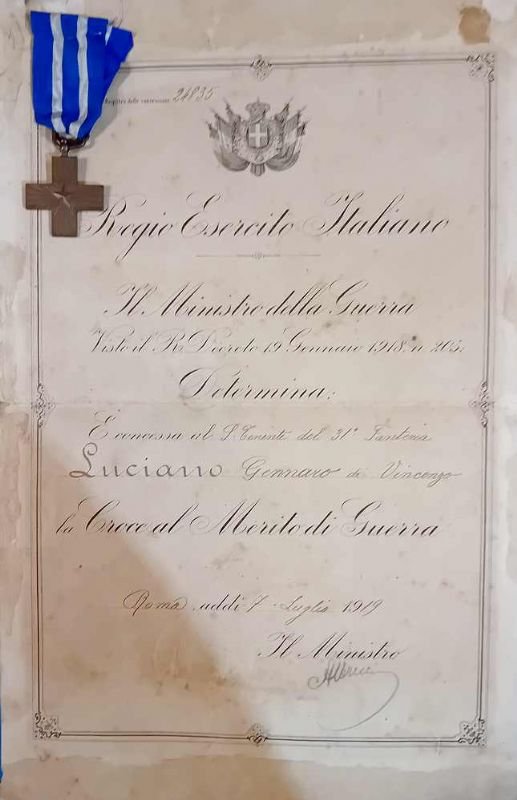 Registro delle concessioni 24835
Regio Esercito Italiano
Il Ministro della Guerra
Visto il R. Decreto 19 Gennaio 1918 n. 205.
Determina:
È concessa al S. Tenente del 31° Fanteria
Luciano Gennaro di Vincenzo
la Croce al Merito di Guerra
Roma, addì 7 Luglio 1919
Il Ministro